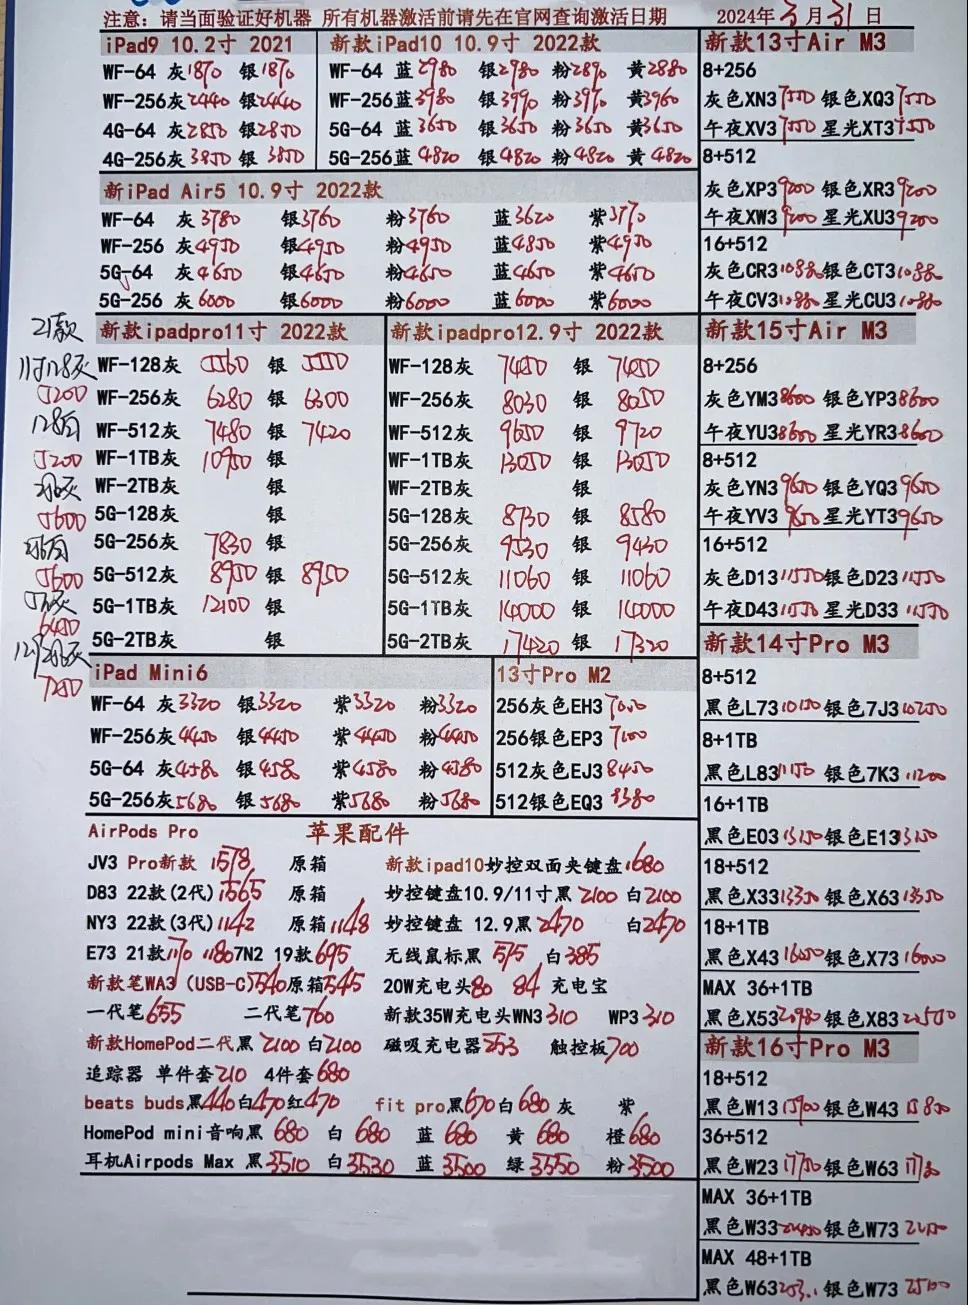 注意：请当面验证好机器 所有机器激活前请先在官网查询激活日期 2024年3月31日
iPad9 10.2寸 2021
WF-64 灰1870 银1870
WF-256灰2440 银2440
4G-64 灰2850 银2850
4G-256灰3850 银 3850
新款iPad10 10.9寸 2022款
WF-64 蓝2980 银2980 粉2890 黄2880
WF-256蓝3980 银3990 粉3970 黄3960
5G-64 蓝3650 银3650 粉3650 黄3650
5G-256蓝4820 银4820 粉4820 黄4820
新iPad Air5 10.9寸 2022款
WF-64 灰3780 银3760 粉3760 蓝3620 紫3770
WF-256 灰4950 银4950 粉4950 蓝4850 紫4950
5G-64 灰4650 银4650 粉4650 蓝4650 紫4650
5G-256 灰6000 银6000 粉6000 蓝6000 紫6000
21款
11寸128灰
5200
128白
5200
256灰
5600
256白
5600
512灰
6450
12.9 256灰
7250
新款ipadpro11寸 2022款
WF-128灰 5560 银 5550
WF-256灰 6280 银 6300
WF-512灰 7480 银 7420
WF-1TB灰 10950 银
WF-2TB灰 银
5G-128灰 银
5G-256灰 7830 银
5G-512灰 8950 银 8950
5G-1TB灰 12100 银
5G-2TB灰 银
新款ipadpro12.9寸 2022款
WF-128灰 7450 银 7450
WF-256灰 8030 银 8050
WF-512灰 9650 银 9720
WF-1TB灰 13050 银 13050
WF-2TB灰 银
5G-128灰 8730 银 8580
5G-256灰 9530 银 9430
5G-512灰 11060 银 11060
5G-1TB灰 14000 银 14000
5G-2TB灰 17420 银 17320
iPad Mini6
WF-64 灰3320 银3320 紫3320 粉3320
WF-256灰4450 银4450 紫4450 粉4450
5G-64 灰4580 银4580 紫4580 粉4580
5G-256灰5680 银5680 紫5680 粉5680
13寸Pro M2
256灰色EH3 7050
256银色EP3 7100
512灰色EJ3 8450
512银色EQ3 8380
AirPods Pro 苹果配件
JV3 Pro新款 1578 原箱 新款ipad10妙控双面夹键盘1680
D83 22款(2代)1565 原箱 妙控键盘10.9/11寸黑 2100 白2100
NY3 22款(3代)1142 原箱1148 妙控键盘 12.9黑2470 白2470
E73 21款1170 1180 7N2 19款695 无线鼠标黑 575 白385
新款笔WA3 (USB-C)540原箱545 20W充电头80 84 充电宝
一代笔655 二代笔760 新款35W充电头WN3 310 WP3 310
新款HomePod二代黑 2100 白2100 磁吸充电器253 触控板700
追踪器 单件套210 4件套680
beats buds黑440白470红470 fit pro黑670白680 灰 紫
HomePod mini音响黑 680 白 680 蓝 680 黄 680 橙680
耳机Airpods Max 黑3510 白3530 蓝 3500 绿3550 粉3500
新款13寸Air M3
8+256
灰色XN3 7550 银色XQ3 7550
午夜XV3 7550 星光XT3 7550
8+512
灰色XP3 9200 银色XR3 9200
午夜XW3 9200 星光XU3 9200
16+512
灰色CR3 10880 银色CT3 10880
午夜CV3 10880 星光CU3 10880
新款15寸Air M3
8+256
灰色YM3 8600 银色YP3 8600
午夜YU3 8600 星光YR3 8600
8+512
灰色YN3 9650 银色YQ3 9650
午夜YV3 9650 星光YT3 9650
16+512
灰色D13 11550 银色D23 11550
午夜D43 11550 星光D33 11550
新款14寸Pro M3
8+512
黑色L73 10150 银色7J3 10250
8+1TB
黑色L83 11150 银色7K3 11200
16+1TB
黑色E03 13150 银色E13 13150
18+512
黑色X33 13350 银色X63 13550
18+1TB
黑色X43 16050 银色X73 16000
MAX 36+1TB
黑色X53 22980 银色X83 22550
新款16寸Pro M3
18+512
黑色W13 15900 银色W43 15850
36+512
黑色W23 17750 银色W63
MAX 36+1TB
黑色W33 24450 银色W73
MAX 48+1TB
黑色W63 银色W73 25100